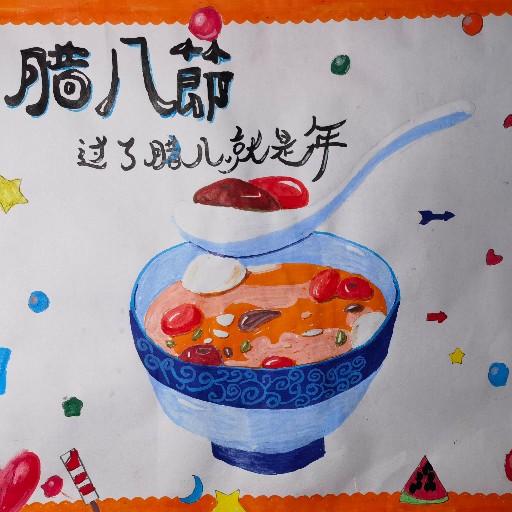 腊八節
过了腊八就是年